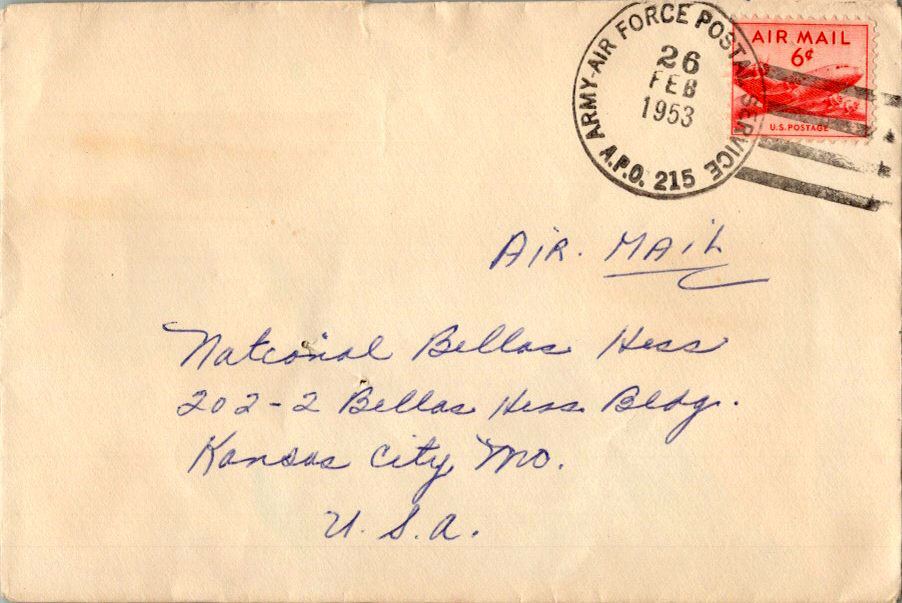 ARMY-AIR FORCE POSTAL SERVICE
26
FEB
1953
A.P.O. 215
AIR MAIL
6¢
U.S. POSTAGE
AIR. MAIL
National Bellas Hess
202-2 Bellas Hess Bldg.
Kansas City, Mo.
U.S.A.